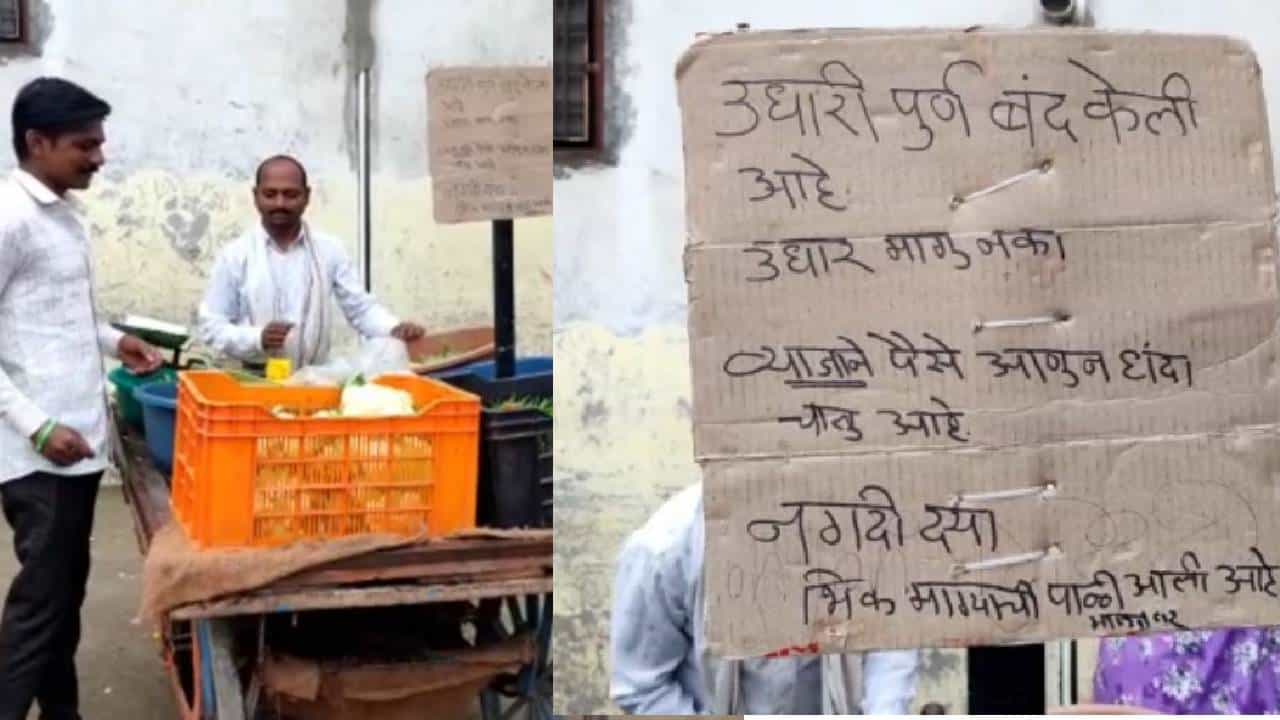 उधारी पुर्ण बंद केली
आहे.
उधार मागु नका
व्याजाने पैसे आणुन धंदा
चालु आहे.
नगदी दया
भिक मागण्याची पाळी आली आहे